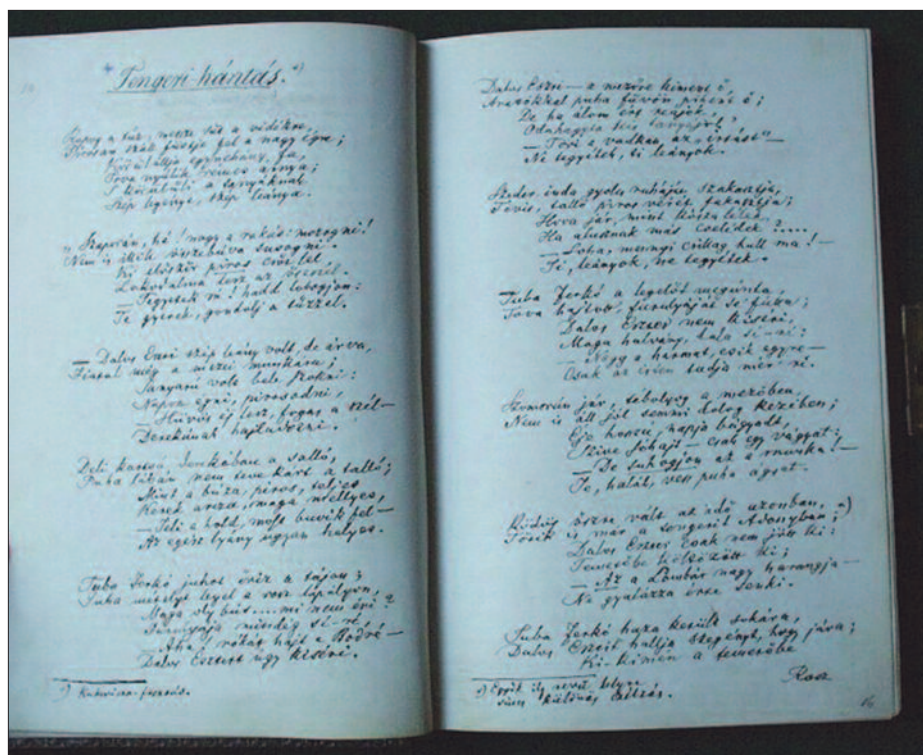 Tengeri-hántás. *)
Ropog a tűz, messze süt a vidékre,
Pirosan száll füstje fel a nagy égre;
Körülállja egynehány fa,
Tova nyúlik rémes árnya;
S körűlűli a tanyáknak
Szép legénye, szép leánya.
„Szaporán, hé! nagy a rakás: mozogni!
Nem is illik összebúva susogni.
Ki először piros csőt lel
Lakodalma lesz az őszszel.
— Tegyetek rá! hadd lobogjon:
Te gyerek, gondolj a tűzzel.
— Dalos Eszti szép leány volt, de árva,
Fiatal még a mezei munkára;
Sanyarú volt bele szokni:
Napon égni, pirosodni,
— Hűvös éj lesz, fogas a szél! —
Derekának hajladozni.
Deli karcsú derekában a salló,
Puha lábán nem teve kárt a talló;
Mint a búza, piros, teljes
Kerek arcza, maga mellyes,
— Teli a hold, most buvik fel —
Az egész lyány ugyan helyes.
Tuba Ferkó juhot őriz a tájon;
Juha mételyt legel a rosz lápályon,
Maga oly bús .... mi nem éri?
Furulyája mindég sí-rí,
— Aha! rókát hajt a Bodré —
Dalos Esztert úgy kiséri.
*) Kukoricza-fosztás.
Dalos Eszti — a mezőre kiment ő,
Aratókkal puha füvön pihent ő;
De ha álom éré renyőt,
Odahagyta kis tanyáját,
— Töri a vadkan az „irtást” —
Ne tegyétek, ti leányok.
Szederinda gyolcs ruháját szakasztja,
Tövis, talló piros vérit fakasztja;
Hova jár, mint kósza lélek,
Ha alusznak más cselédek? ....
— Soha, mennyi csillag hull ma! —
Ti, leányok, ne tegyétek.
Tuba Ferkó a legelőt megúnta,
Tova hajtott, furulyáját se' fútta;
Dalos Eszter nem kiséri,
Maga halvány, dala sí-rí;
— Nagy a harmat, esik egyre —
Csak az isten tudja mér' rí.
Szomorún jár, tébolyog a mezőben,
Nem is áll jól semmi dolog kezében;
Éje hosszú, napja bágyadt,
Szive sóhajt — csak egy vágyat:
— De suhogjon az a munka! —
Te, halál, vess puha ágyat.
Ködös őszre vált az idő azonban,
Törik is már a tengerit Adonyban; *)
Dalos Eszter csak nem jött ki:
Temetőbe költözött ki;
— Az a Lombár nagy harangja —
Ne gyalázza érte senki.
Tuba Ferkó haza került sokára,
Dalos Esztit hallja szegényt, hogy jára;
Ki-kimén a temetőbe
Rosz
*) Egyik ily nevű helyre